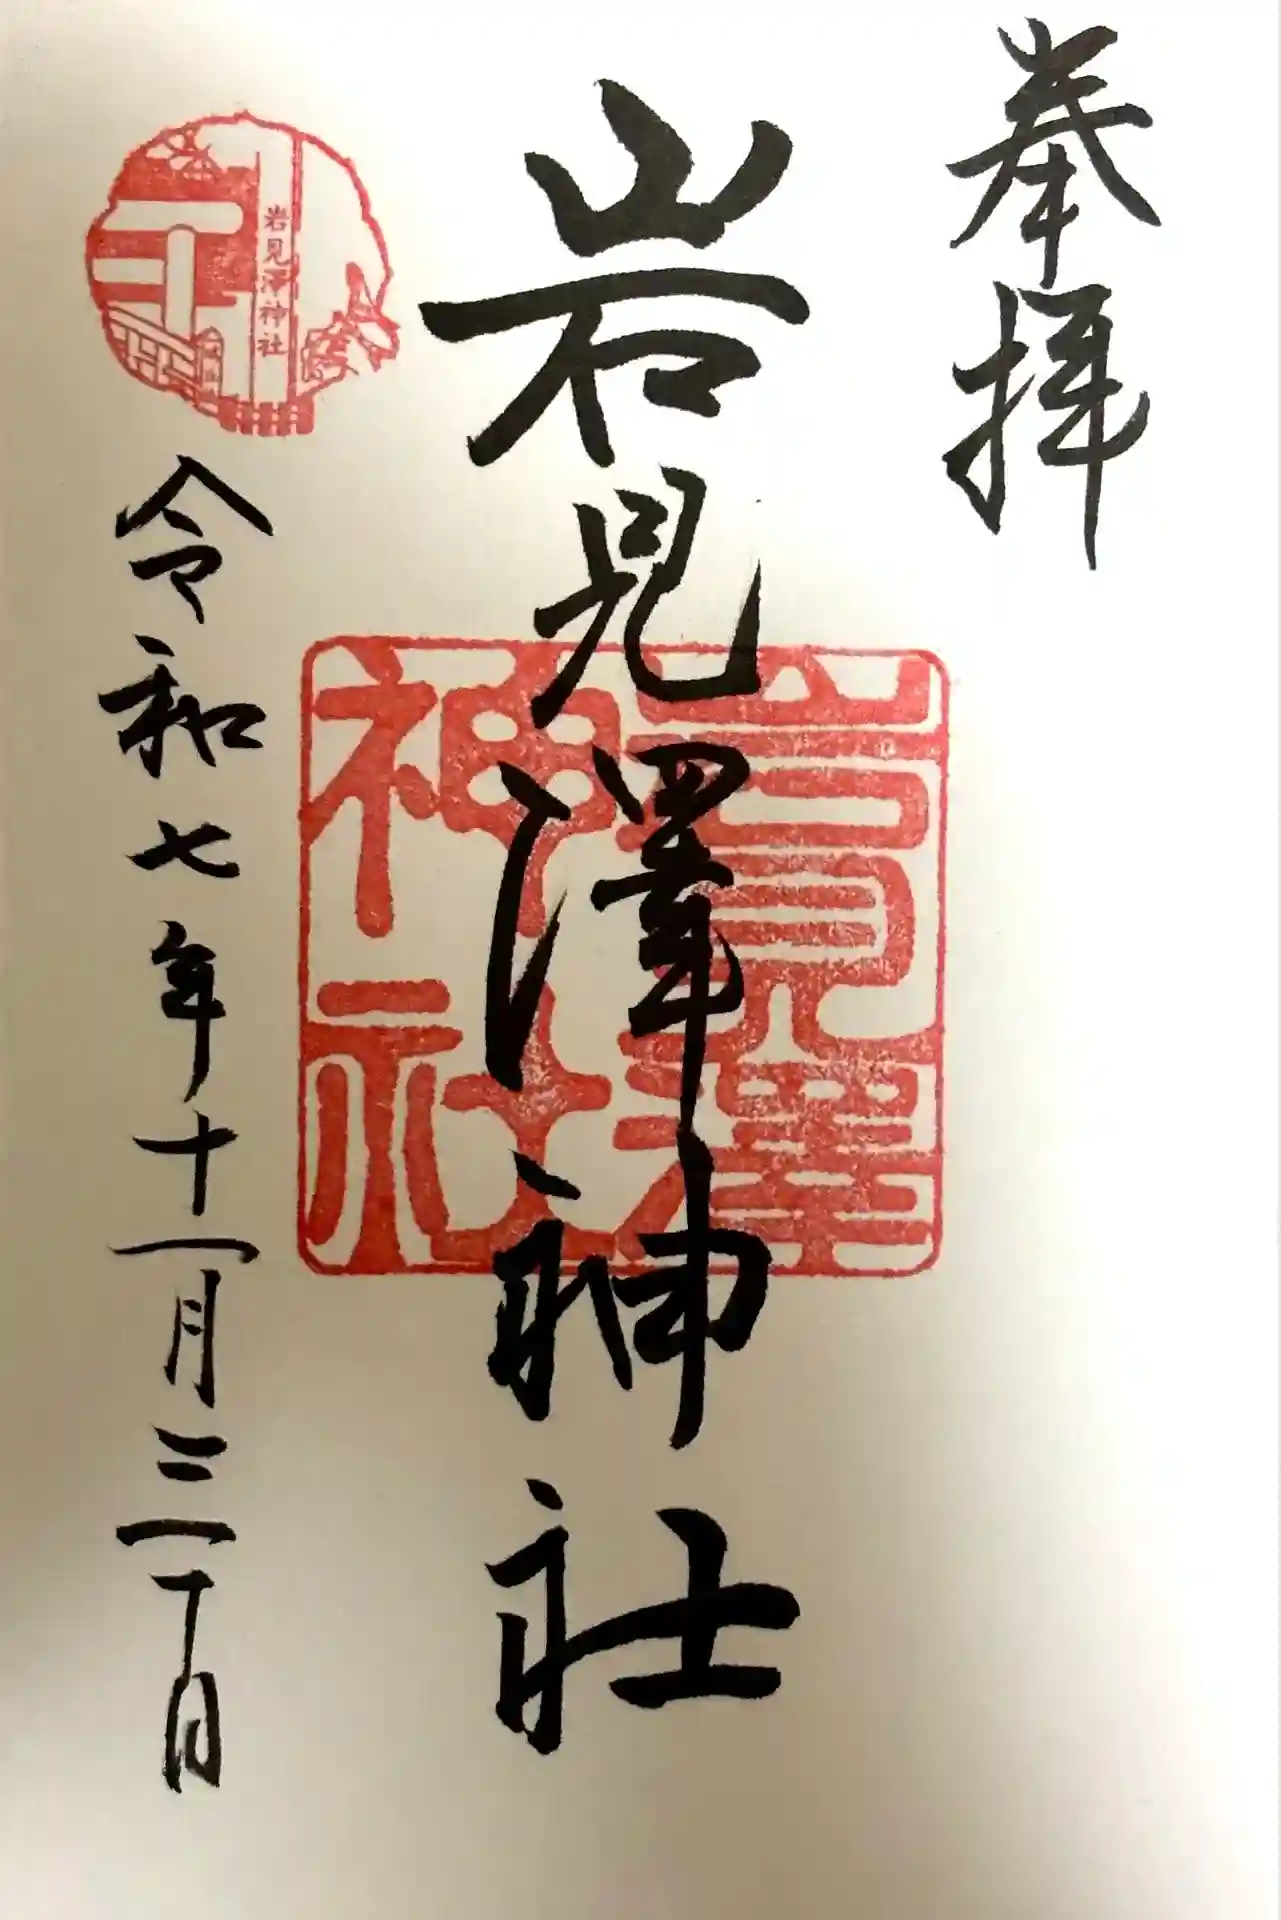 奉拝
岩見澤神社
岩見澤神社
岩見澤
神社
令和七年十一月三十日